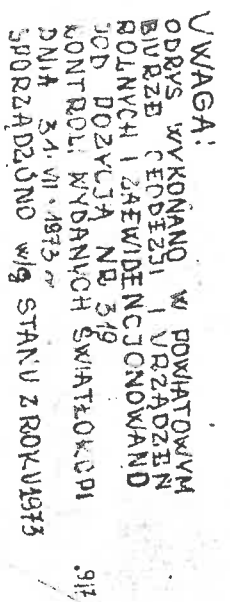 UWAGA:
ODRYS WYKONANO W POWIATOWYM
BIURZE GEODEZJI I URZĄDZEŃ
ROLNYCH I ZAEWIDENCJONOWANO
POD POZYCJĄ NR 319
KONTROLI WYDANYCH ŚWIATŁOKOPI
DNIA 31.VII.1973 r
SPORZĄDZONO w/g STANU Z ROKU 1973